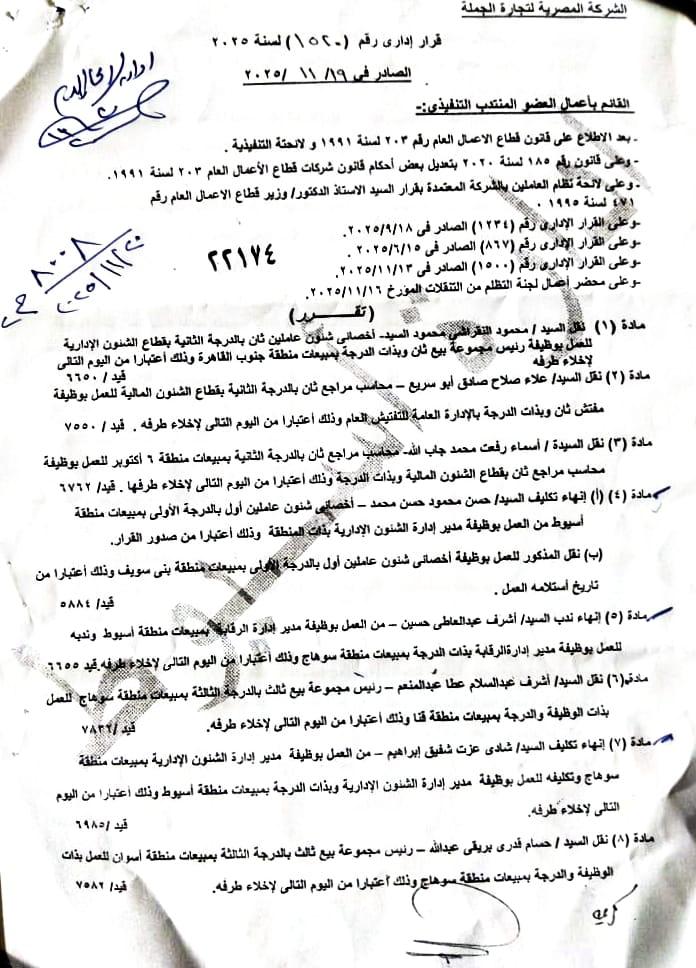 الشركة المصرية لتجارة الجملة
قرار إدارى رقم (١٥٢٠) لسنة ٢٠٢٥
الصادر فى ١٩/ ١١ /٢٠٢٥
القائم بأعمال العضو المنتدب التنفيذى:-
- بعد الاطلاع على قانون قطاع الاعمال العام رقم ٢٠٣ لسنة ١٩٩١ و لائحتة التنفيذية .
- وعلى قانون رقم ١٨٥ لسنة ٢٠٢٠ بتعديل بعض أحكام قانون شركات قطاع الأعمال العام ٢٠٣ لسنة ١٩٩١.
- وعلى لائحة نظام العاملين بالشركة المعتمدة بقرار السيد الاستاذ الدكتور/ وزير قطاع الاعمال العام رقم
٤٧١ لسنة ١٩٩٥ .
-وعلى القرار الإدارى رقم (١٢٣٤) الصادر فى ٢٠٢٥/٩/١٨.
-وعلى القرار الإدارى رقم (٨٦٧) الصادر فى ٢٠٢٥/٦/١٥ .
-وعلى القرار الإدارى رقم (١٥٠٠) الصادر فى ٢٠٢٥/١١/١٣.
-وعلى محضر أعمال لجنة التظلم من التنقلات المؤرخ ٢٠٢٥/١١/١٦.
٢٢١٧٤
٨٠٠٨
(تقــــرر)
مادة (١) نقل السيد / محمود النقراشى محمود السيد- أخصائى شئون عاملين ثان بالدرجة الثانية بقطاع الشئون الإدارية
للعمل بوظيفة رئيس مجموعة بيع ثان وبذات الدرجة بمبيعات منطقة جنوب القاهرة وذلك أعتبارا من اليوم التالى
لإخلاء طرفه قيد / ٦٦٥٠
مادة (٢) نقل السيد/ علاء صلاح صادق أبو سريع – محاسب مراجع ثان بالدرجة الثانية بقطاع الشئون المالية للعمل بوظيفة
مفتش ثان وبذات الدرجة بالإدارة العامة للتفتيش العام وذلك أعتبارا من اليوم التالى لإخلاء طرفه . قيد / ٧٥٥٠
مادة (٣) نقل السيدة / أسماء رفعت محمد جاب الله- محاسب مراجع ثان بالدرجة الثانية بمبيعات منطقة ٦ أكتوبر للعمل بوظيفة
محاسب مراجع ثان بقطاع الشئون المالية وبذات الدرجة وذلك أعتبارا من اليوم التالى لإخلاء طرفها . قيد/ ٦٧٦٢
مادة (٤) (أ) إنهاء تكليف السيد/ حسن محمود حسن محمد – أخصائى شئون عاملين أول بالدرجة الأولى بمبيعات منطقة
أسيوط من العمل بوظيفة مدير إدارة الشئون الإدارية بذات المنطقة وذلك أعتبارا من صدور القرار.
(ب) نقل المذكور للعمل بوظيفة أخصائى شئون عاملين أول بالدرجة الأولى بمبيعات منطقة بنى سويف وذلك أعتبارا من
تاريخ أستلامه العمل . قيد/ ٥٨٨٤
مادة (٥) إنهاء ندب السيد/ أشرف عبدالعاطى حسين – من العمل بوظيفة مدير إدارة الرقابة بمبيعات منطقة أسيوط وندبه
للعمل بوظيفة مدير إدارةالرقابة بذات الدرجة بمبيعات منطقة سوهاج وذلك أعتبارا من اليوم التالى لإخلاء طرفه.قيد ٦٦٥٥
مادة (٦) نقل السيد/ أشرف عبدالسلام عطا عبدالمنعم – رئيس مجموعة بيع ثالث بالدرجة الثالثة بمبيعات منطقة سوهاج للعمل
بذات الوظيفة والدرجة بمبيعات منطقة قنا وذلك أعتبارا من اليوم التالى لإخلاء طرفه. قيد /٧٨٣٦
مادة (٧) إنهاء تكليف السيد/ شادى عزت شفيق إبراهيم – من العمل بوظيفة مدير إدارة الشئون الإدارية بمبيعات منطقة
سوهاج وتكليفه للعمل بوظيفة مدير إدارة الشئون الإدارية وبذات الدرجة بمبيعات منطقة أسيوط وذلك أعتبارا من اليوم
التالى لإخلاء طرفه. قيد /٦٩٨٥
مادة (٨) نقل السيد / حسام قدرى بريقى عبدالله – رئيس مجموعة بيع ثالث بالدرجة الثالثة بمبيعات منطقة أسوان للعمل بذات
الوظيفة والدرجة بمبيعات منطقة سوهاج وذلك أعتبارا من اليوم التالى لإخلاء طرفه. قيد/ ٧٥٨٢